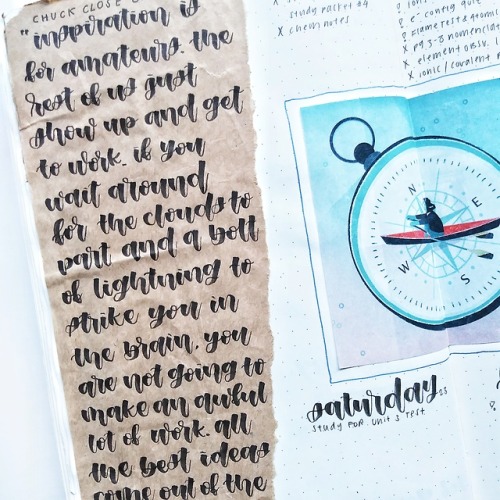 CHUCK CLOSE
"inspiration is
for amateurs. the
rest of us just
show up and get
to work. if you
wait around
for the clouds to
part and a bolt
of lightning to
strike you in
the brain, you
are not going to
make an awful
lot of work. all
the best ideas
come out of the
study packet #4
x chem notes
e- config quiz
x pg 5-8 nomenclature
x element observ.
x ionic / covalent
N
E
S
W
saturday
study for unit 3 test